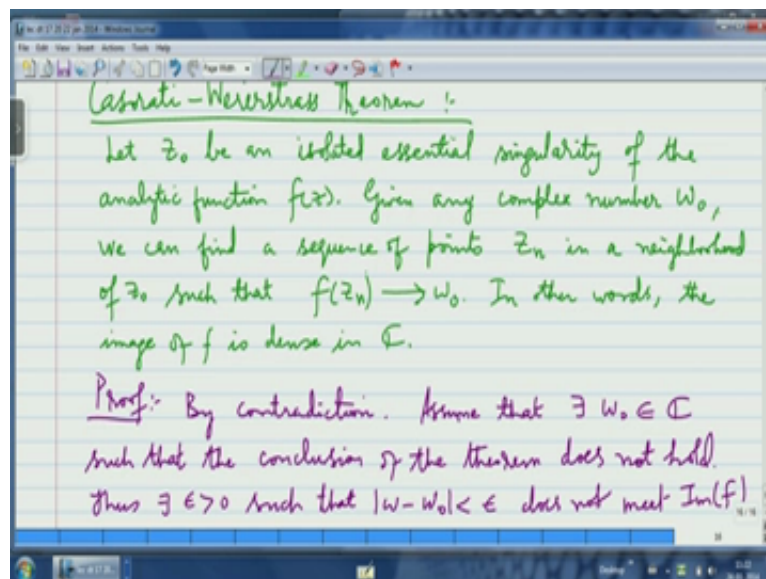 File Edit View Insert Actions Tools Help
Page Width
Casorati-Weierstrass Theorem :-
Let z₀ be an isolated essential singularity of the
analytic function f(z). Given any complex number w₀,
we can find a sequence of points zₙ in a neighborhood
of z₀ such that f(zₙ) ⟶ w₀. In other words, the
image of f is dense in ℂ.
Proof:- By contradiction. Assume that ∃ w₀ ∈ ℂ
such that the conclusion of the theorem does not hold.
Thus ∃ ϵ>0 such that |w-w₀|< ϵ does not meet Im(f)